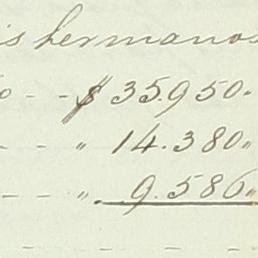 is hermanos
o - - $ 35.950.„
- - „ 14.380„
- - „ 9.586„